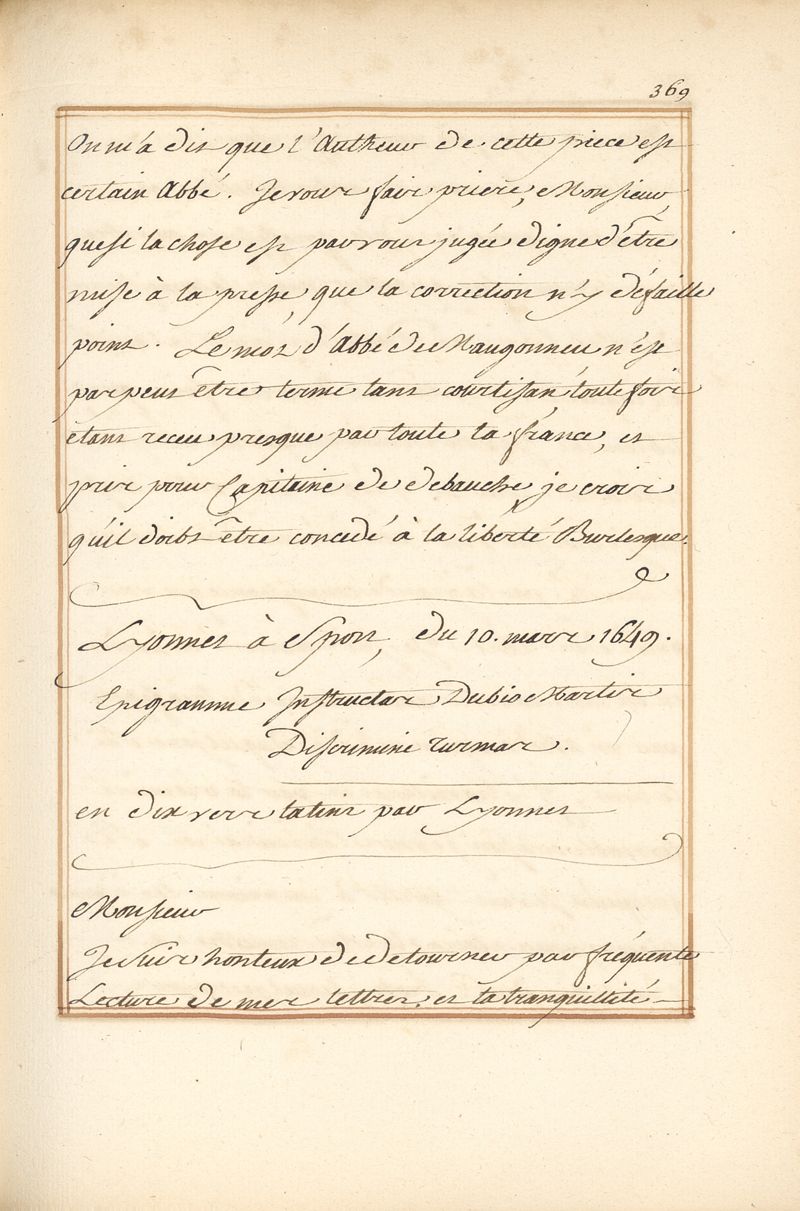 369
On m'a dit que l'Autheur de cette piece est
certain Abbé. Je vous fais priere, Monsieur,
que si la chose est par vous jugée digne d'être
mise à la presse, que la correction n'y défaille
point. Le mot d'Abbé de Maugouneu n'est
pas peut être terme tant courtisan toutefois
étant receu presque par toute la france, et
pris pour Capitaine de debauche je crois
qu'il doibt être concedé à la liberté Burlesque.
Lyonnet à Spon, du 10. mars 1649.
Epigramme Instructas Dubio Martis
Discrimine turmas.
en dix vers latins par Lyonnet
Monsieur
Je suis honteux de detourner par fréquente
Lecture de mes lettres, et la tranquillité